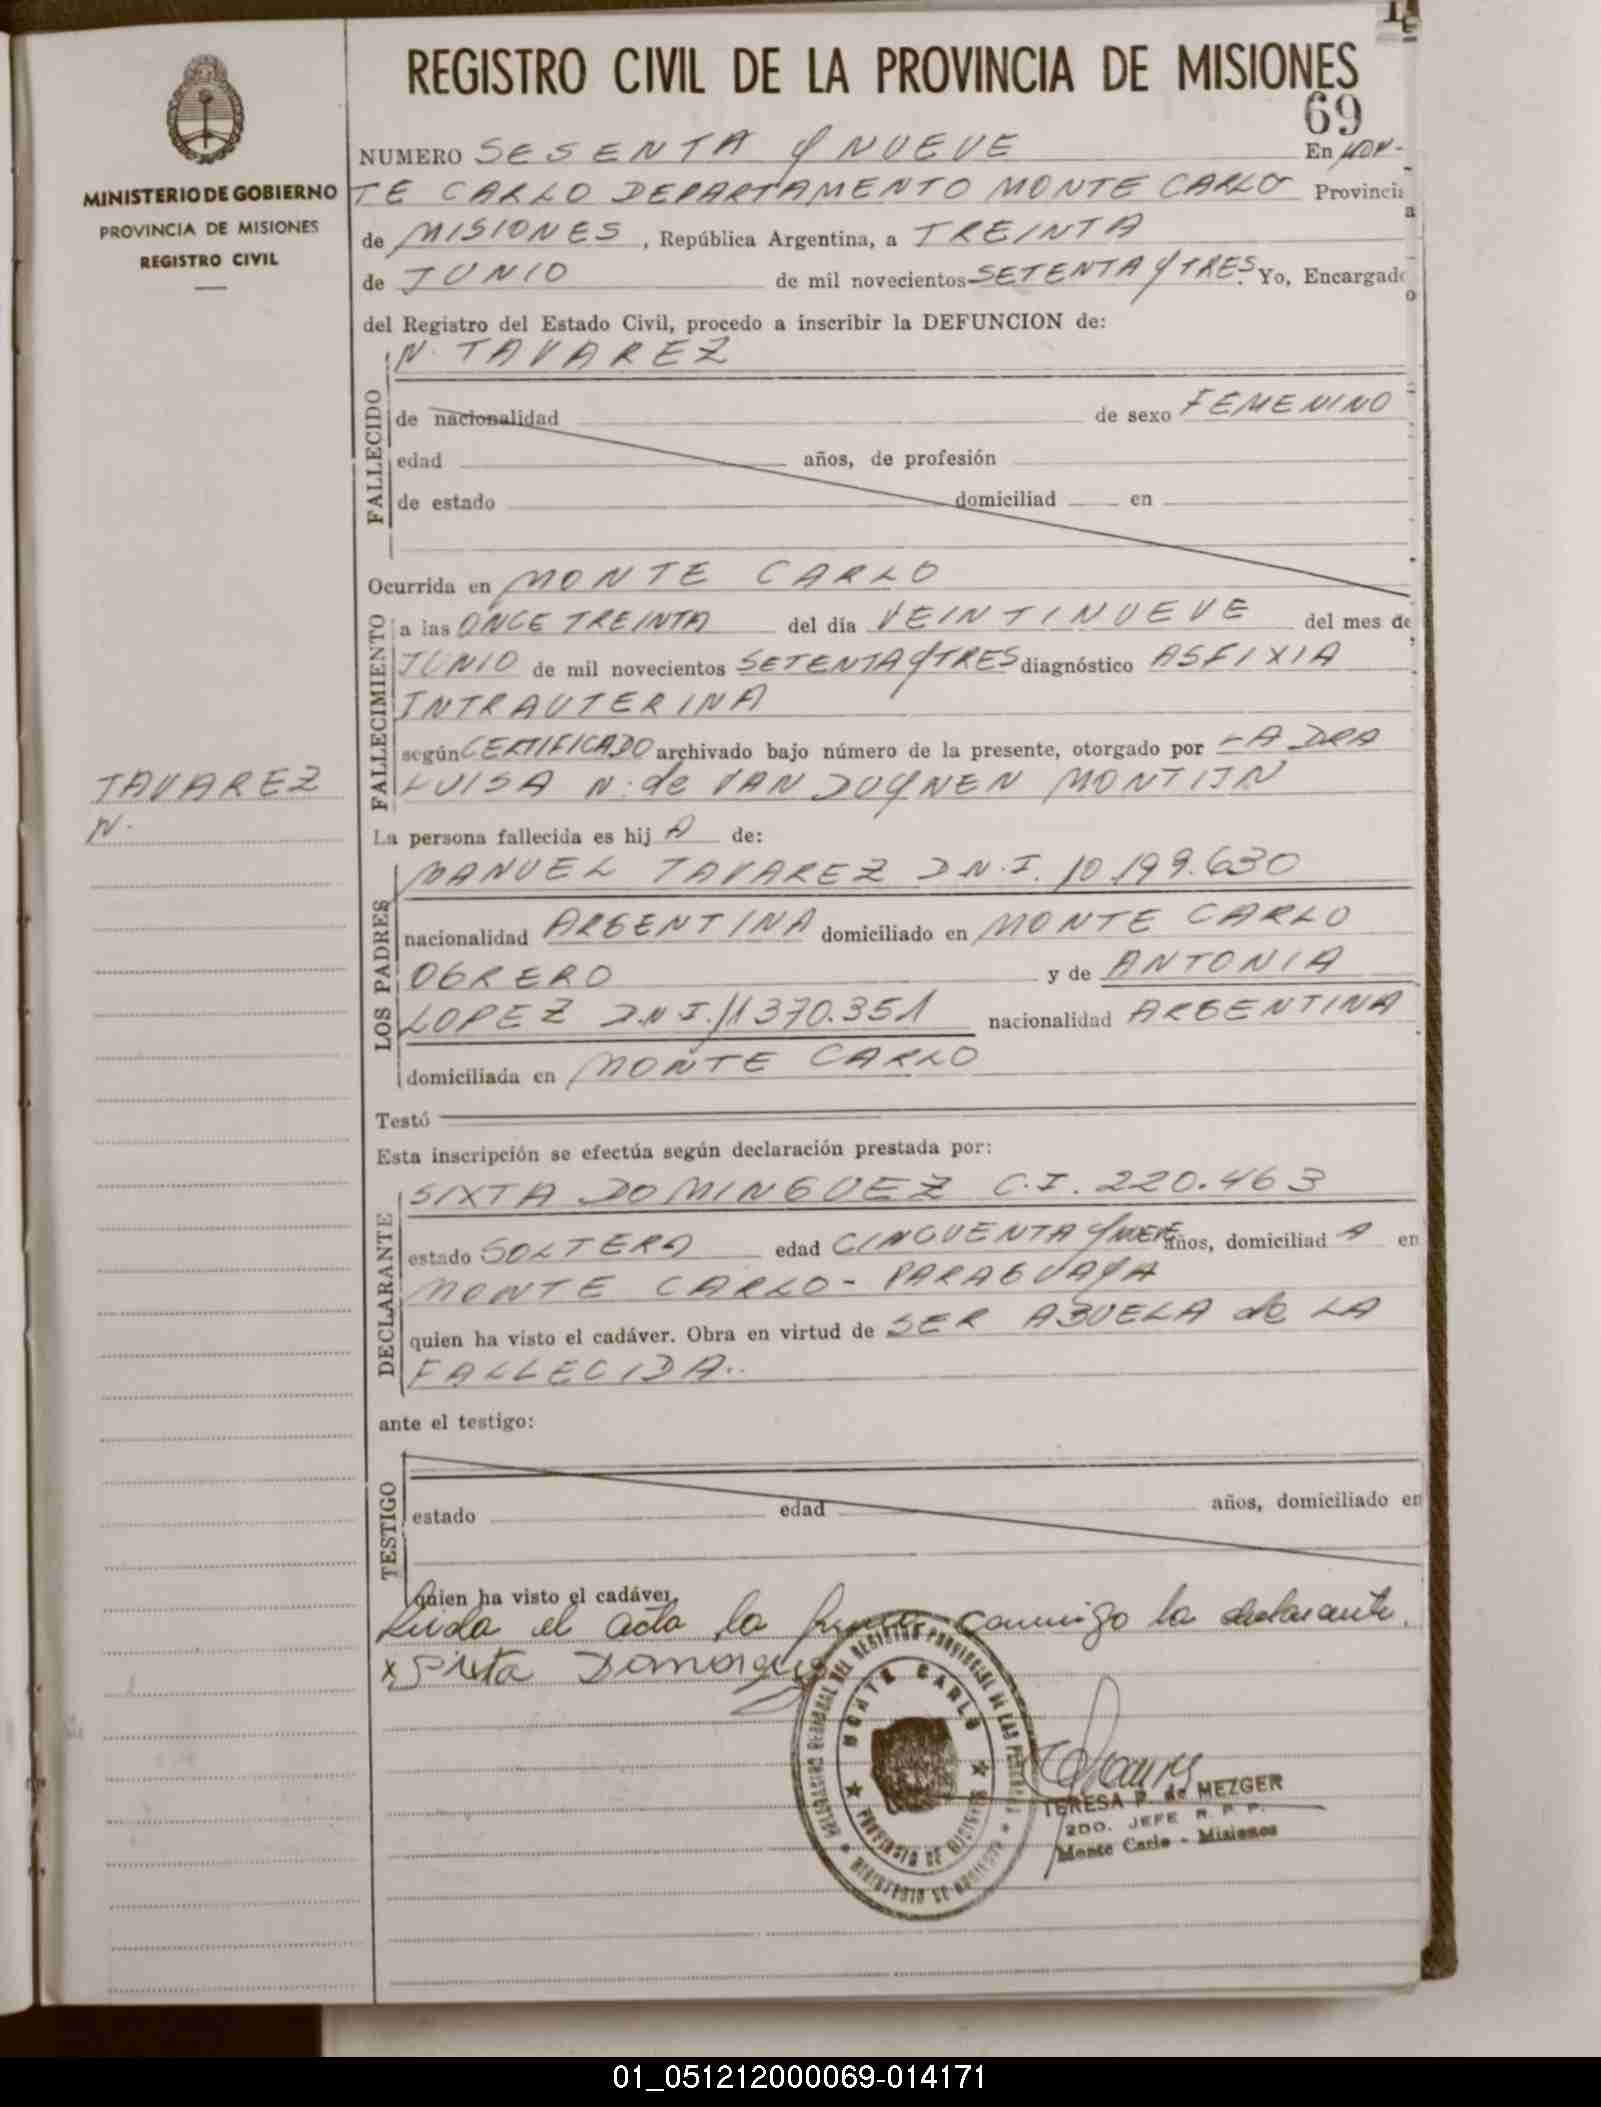 REGISTRO CIVIL DE LA PROVINCIA DE MISIONES
69
MINISTERIO DE GOBIERNO
PROVINCIA DE MISIONES
REGISTRO CIVIL
NUMERO SESENTA Y NUEVE En MON-
TE CARLO DEPARTAMENTO MONTE CARLO Provincia
de MISIONES, República Argentina, a TREINTA
de JUNIO de mil novecientos SETENTA Y TRES. Yo, Encargado
del Registro del Estado Civil, procedo a inscribir la DEFUNCION de:
N. TAVAREZ
FALLECIDO
de nacionalidad de sexo FEMENINO
edad años, de profesión
de estado domiciliad en
Ocurrida en MONTE CARLO
FALLECIMIENTO
a las ONCE TREINTA del día VEINTINUEVE del mes de
JUNIO de mil novecientos SETENTA Y TRES diagnóstico ASFIXIA
INTRAUTERINA
según CERTIFICADO archivado bajo número de la presente, otorgado por LA DRA
LUISA N. de VAN DUYNEN MONTIJN
TAVAREZ
N.
La persona fallecida es hij A de:
LOS PADRES
MANUEL TAVAREZ D.N.I. 10.199.630
nacionalidad ARGENTINA domiciliado en MONTE CARLO
OBRERO y de ANTONIA
LOPEZ D.N.I. 11370.351 nacionalidad ARGENTINA
domiciliada en MONTE CARLO
Testó
Esta inscripción se efectúa según declaración prestada por:
DECLARANTE
SIXTA DOMINGUEZ C.I. 220.463
estado SOLTERA edad CINCUENTA Y NUEVE años, domiciliad A en
MONTE CARLO - PARAGUAYA
quien ha visto el cadáver. Obra en virtud de SER ABUELA de LA
FALLECIDA..
ante el testigo:
TESTIGO
estado edad años, domiciliado en
quien ha visto el cadáver.
Leida el acta la firma conmigo la declarante.
x Sixta Domingues
MONTE CARLO
PROVINCIA DE MISIONES
MINISTERIO DE GOBIERNO
TERESA P. de MEZGER
2DO. JEFE R. P. P.
Monte Carlo - Misiones
01_051212000069-014171